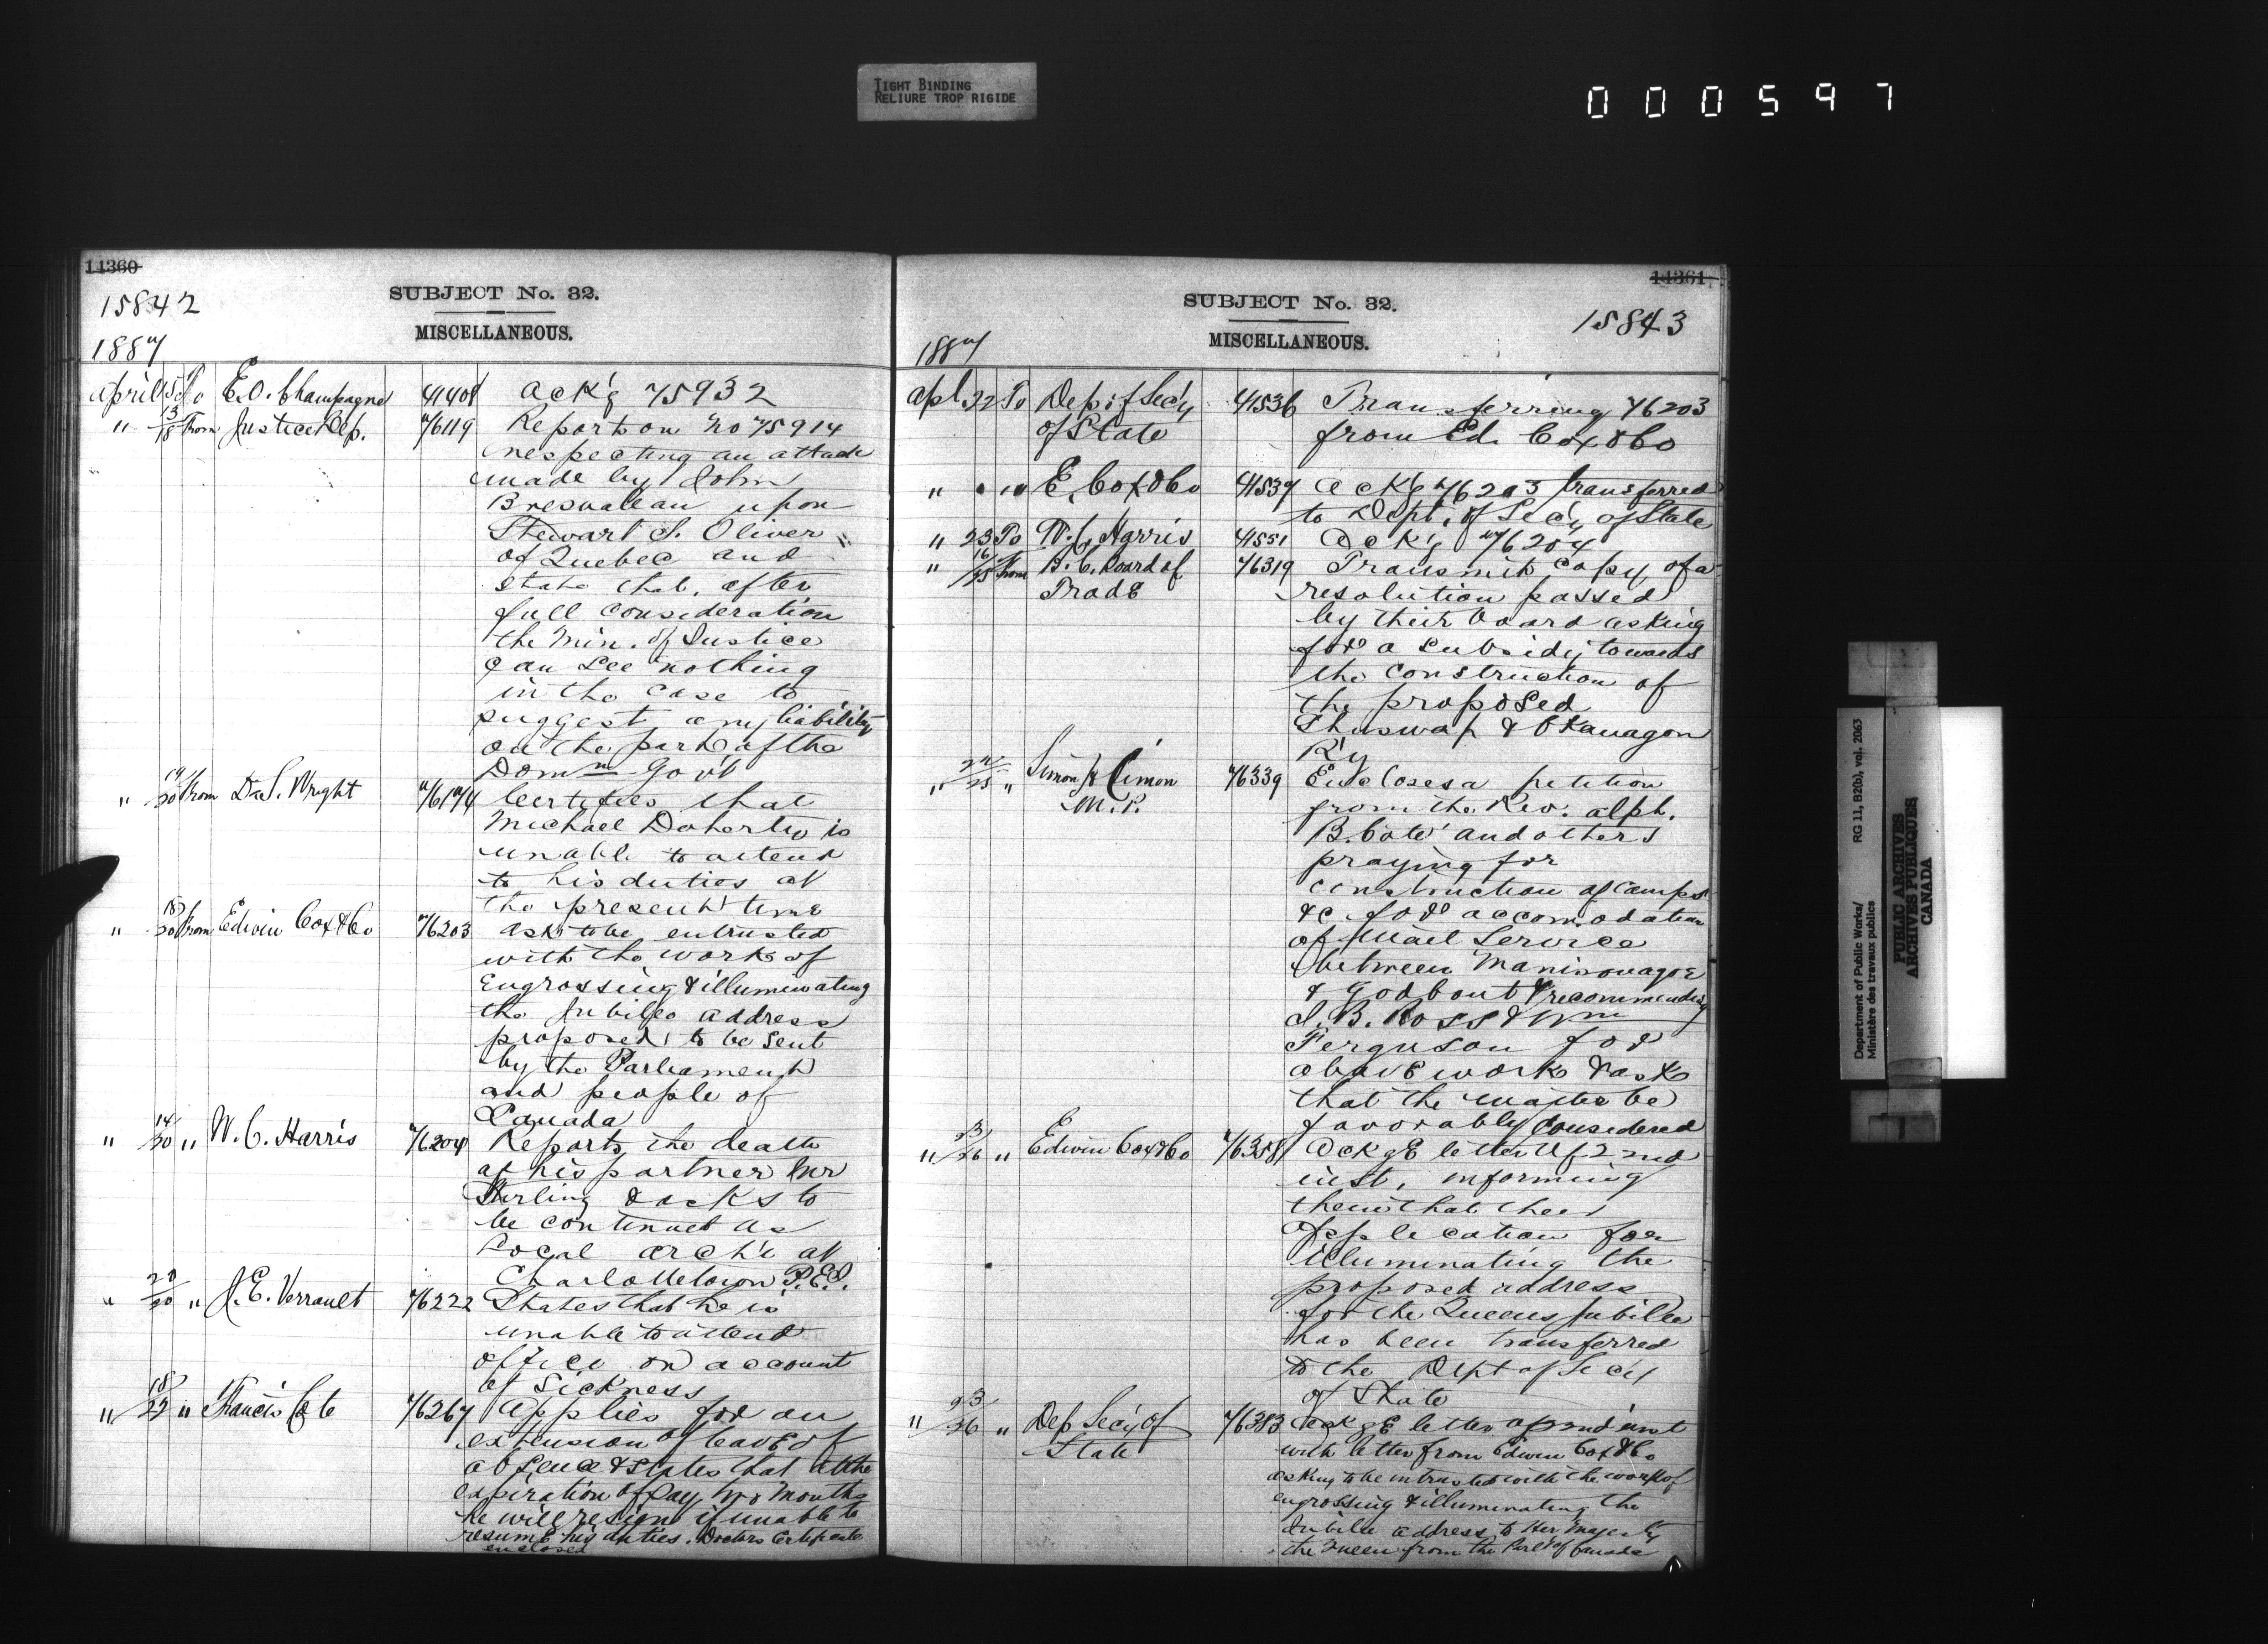 TIGHT BINDING
RELIURE TROP RIGIDE
000597
14360
15842
SUBJECT No. 32.
MISCELLANEOUS.
1887
April 15 To E. O. Champagne 41408 Ack'g 75932
" 13/18 From Justice Dep. 76119 Reports on No 75914
respecting an attack
made by John
upon
Stewart S. Oliver
of Quebec and
state that, after
full consideration
the Min. of Justice
can see nothing
in the case to
suggest any liability
on the part of the
Domn Gov't
" 19/20 From D. S. Wright 76174 Certifies that
Michael Doherty is
unable to attend
to his duties at
the present time
" 18/20 From Edwin Cox & Co 76203 Ask to be entrusted
with the work of
Engrossing & illuminating
the Jubilee address
proposed to be sent
by the Parliament
and people of
Canada
" 14/20 " W. C. Harris 76204 Reports the death
of his partner Mr
Stirling & asks to
be continued as
Local Arch't at
Charlottetown P.E.I.
" 20/20 " J. E. Verrault 76222 States that he is
unable to attend
office on account
of Sickness
" 18/22 " Francis Cote 76267 Applies for an
extension of leave of
absence & states that at the
expiration of say two months
he will resign if unable to
resume his duties. Doctors Certificate
enclosed
14361
SUBJECT No. 32.
15843
MISCELLANEOUS.
1887
Apl 22 To Dep of Sec'y 41536 Transferring 76203
of State from Ed. Cox & Co
" " " E. Cox & Co 41537 Ack'g 76203 transferred
to Dept. of Sec'y of State
" 23 To W. C. Harris 41551 Ack'g 76204
" 16/25 From B. C. Board of 76319 Transmit copy of a
Trade resolution passed
by their board asking
for a subsidy towards
the construction of
the proposed
Shuswap & Okanagon
R'y
" 25 " Simon X Cimon 76339 Encloses a petition
M.P. from the Rev. Alph.
B. Coté and others
praying for
construction of camps
&c for accomodation
of Mail Service
between Manicouagan
& Godbout & recommending
J. B. Ross & Wm
Ferguson for
above work & ask
that the matter be
favorably Considered
" 23/26 " Edwin Cox & Co 76358 Ackge letter of 22nd
inst, informing
them that their
application for
illuminating the
proposed address
for the Queens Jubilee
has been transferred
to the Dept of Sec'y
of State
" 23/26 " Dep Sec'y of 76383 Ackge letter of 22nd inst
State with letter from Edwin Cox & Co
asking to be intrusted with the work of
engrossing & illuminating the
Jubilee address to Her Majesty
the Queen from the Parlt of Canada
Department of Public Works/
Ministère des travaux publics
RG 11, B2(b), vol. 2063
PUBLIC ARCHIVES
ARCHIVES PUBLIQUES
CANADA